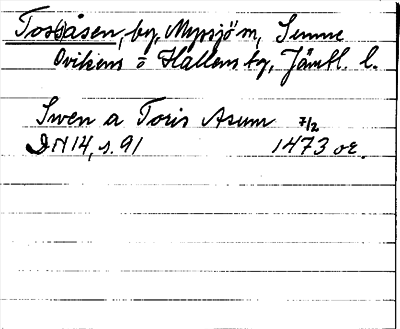 Tossåsen, by, Myssjö sn, Sunne
Ovikens o Hallens tg, Jämtl. l.
Swen a Toris Asum 7/2
DN 14, s. 91 1473 or.